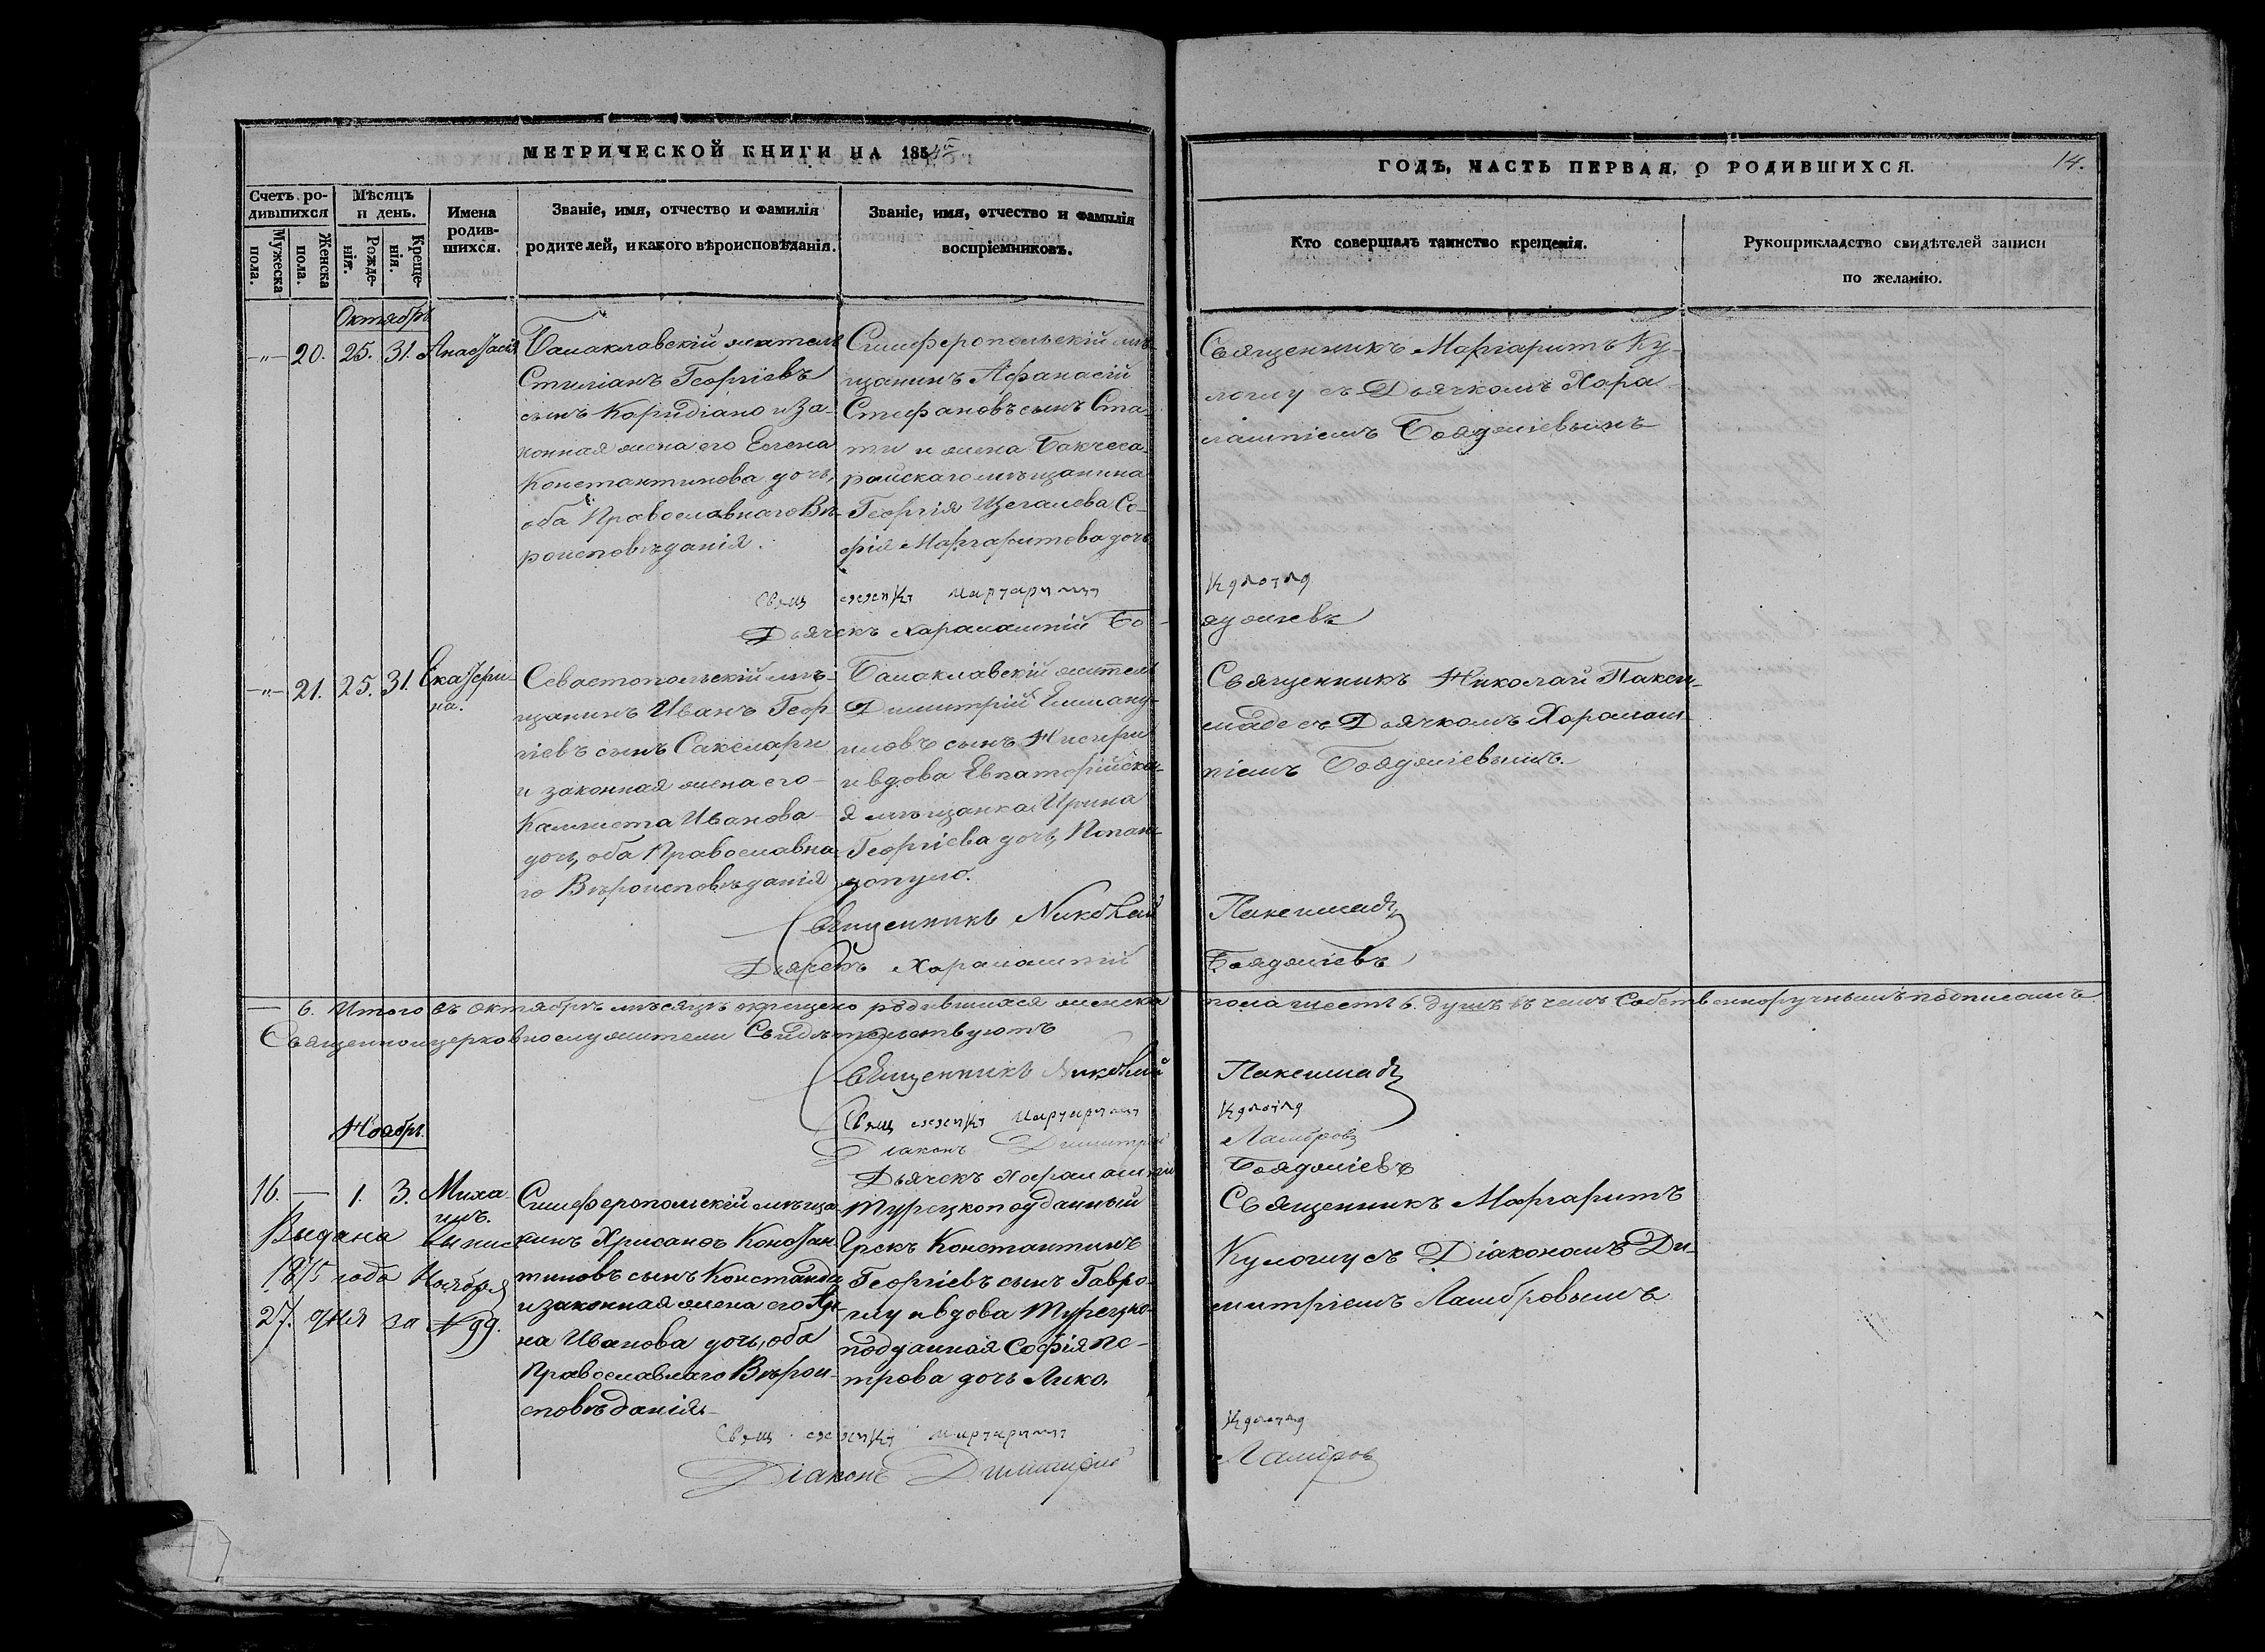 МЕТРИЧЕСКОЙ КНИГИ НА 185
ГОДЪ, ЧАСТЬ ПЕРВАЯ, О РОДИВШИХСЯ.
14.
Счетъ родившихся
Мужеска пола.
Женска пола.
Мѣсяцъ и день.
Рожденія.
Крещенія.
Имена родившихся.
Званіе, имя, отчество и фамилія
родителей, и какого вѣроисповѣданія.
Званіе, имя, отчество и фамилія
воспріемниковъ.
Кто совершалъ таинство крещенія.
Рукоприкладство свидѣтелей записи
по желанію.
Октябрь
—"— 20. 25. 31. Анастасія
Балаклавскій житель
Стиліанъ Георгіевъ
сынъ Коридіано и за-
конная жена его Елена
Константинова дочь,
оба Православнаго Вѣ-
роисповѣданія.
Симферопольскій мѣ-
щанинъ Афанасій
Стефановъ сынъ Ста-
ти и жена Бакчеса-
райскаго мѣщанина
Георгія Щегалева Со-
фія Маргаритова дочь
Священникъ Маргаритъ Ку-
логлу съ Дьячкомъ Хара-
лампіемъ Бояджіевымъ
Свящ Маргарит Кулоглу
Дьячекъ Харалампій Бо-
яджіевъ
—"— 21. 25. 31. Екатери-
на.
Севастопольскій мѣ-
щанинъ Иванъ Геор
гіевъ сынъ Сакелари
и законная жена его
Каллиста Иванова
дочь, оба Православна-
го Вѣроисповѣданія
Балаклавскій житель
Димитрій
сынъ
и вдова Евпаторійска-
я мѣщанка Ирина
Георгіева дочь, Попан-
допуло.
Священникъ Николай Пакси-
маде съ Дьячкомъ Харалам-
піемъ Бояджіевымъ.
Священникъ Николай Паксимади
Дьячекъ Харалампій Бояджіевъ
— 6. Итого въ октябрѣ мѣсяцѣ крещено родившихся женска пола шесть 6. душъ въ чемъ Собственноручнымъ подписомъ
Священноицерковнослужители Свидѣтельствуютъ
Священникъ Николай Паксимади
Свящ Маргарит Кулоглу
Діаконъ Димитрій Ламбровъ
Дьячекъ Харалампій Бояджіевъ
Ноябрь.
16. — 1. 3. Миха-
илъ.
Выдана выпис
1875 года Ноября
27. дня за №99.
Симферопольскій мѣща-
нинъ Хрисанфъ Констан
тиновъ сынъ Констанди
и законная жена его
на Иванова дочь, оба
Православнаго Вѣрои-
сповѣданія.
Турецкоподданный
Грекъ Константинъ
Георгіевъ сынъ Гавро-
глу и вдова Турецко-
подданная Софія Пе-
трова дочь Лико.
Священникъ Маргаритъ
Кулоглу съ Діакономъ Ди-
митріемъ Ламбровымъ
Свящ Маргарит Кулоглу
Діаконъ Димитрій Ламбров